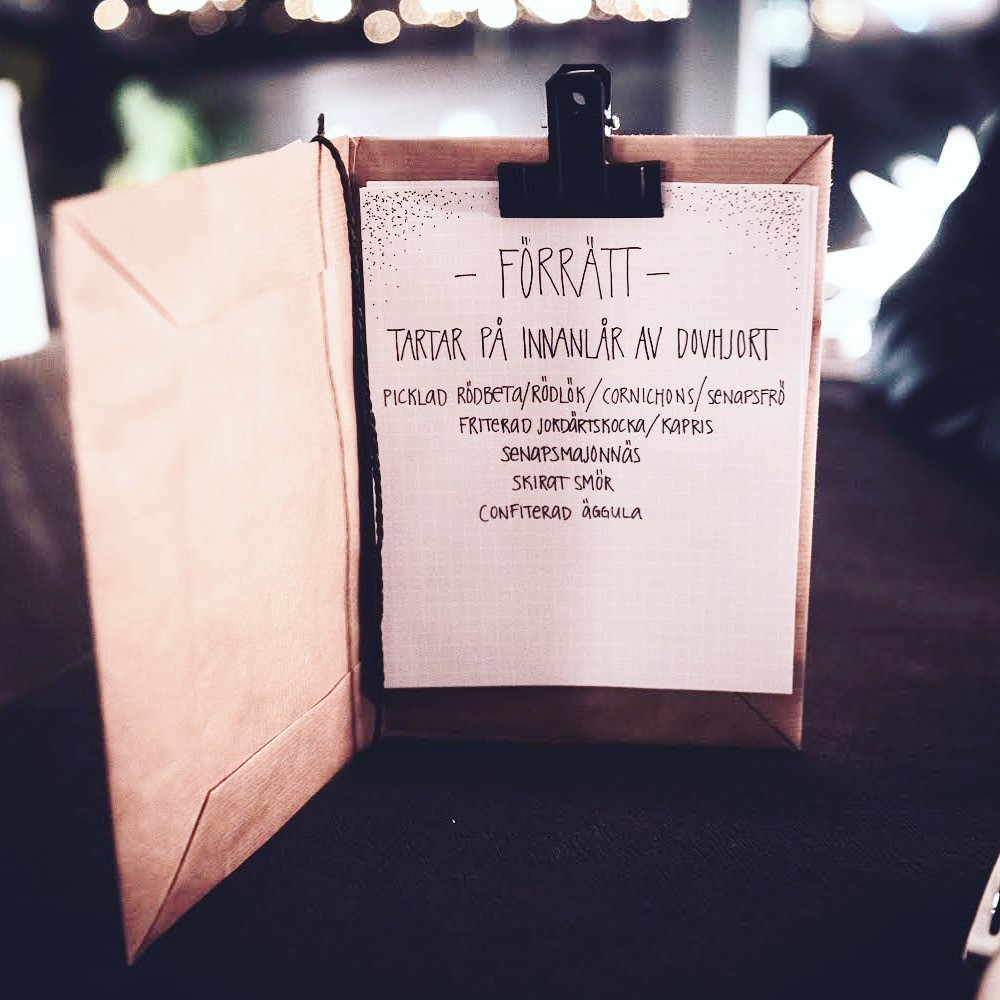 - FÖRRÄTT -
TARTAR PÅ INNANLÅR AV DOVHJORT
PICKLAD RÖDBETA/RÖDLÖK/CORNICHONS/SENAPSFRÖ
FRITERAD JORDÄRTSKOCKA/KAPRIS
SENAPSMAJONNÄS
SKIRAT SMÖR
CONFITERAD ÄGGULA